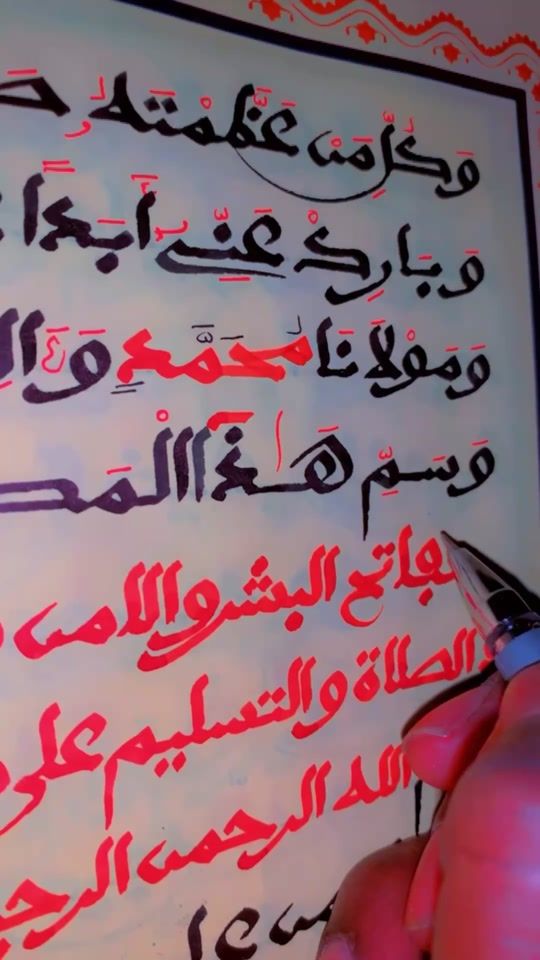 وَكُلِّ مَنْ عَظَّمْتَهُ
وَبَارِكْ عَنِّي أَبَداً
وَمَوْلَانَا مُحَمَّدٍ وَالِ
وَسَمِّ هَٰذَا الْمَ
فاتح البشر والامن
والصلاة والتسليم على
الله الرحمن الرحي